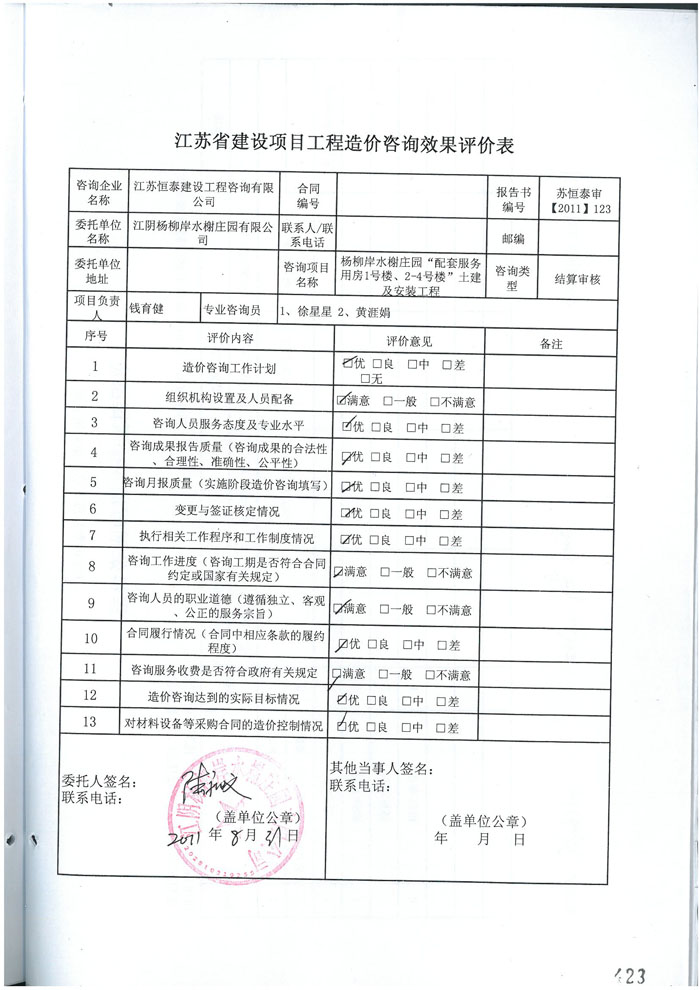 江苏省建设项目工程造价咨询效果评价表
咨询企业名称 江苏恒泰建设工程咨询有限公司 合同编号 报告书编号 苏恒泰审【2011】123
委托单位名称 江阴杨柳岸水榭庄园有限公司 联系人/联系电话 邮编
委托单位地址 咨询项目名称 杨柳岸水榭庄园“配套服务用房1号楼、2-4号楼”土建及安装工程 咨询类型 结算审核
项目负责人 钱育健 专业咨询员 1、徐星星 2、黄涯娟
序号 评价内容 评价意见 备注
1 造价咨询工作计划 ☑优 □良 □中 □差
□无
2 组织机构设置及人员配备 ☑满意 □一般 □不满意
3 咨询人员服务态度及专业水平 ☑优 □良 □中 □差
4 咨询成果报告质量（咨询成果的合法性、合理性、准确性、公平性） ☑优 □良 □中 □差
5 咨询月报质量（实施阶段造价咨询填写） ☑优 □良 □中 □差
6 变更与签证核定情况 ☑优 □良 □中 □差
7 执行相关工作程序和工作制度情况 ☑优 □良 □中 □差
8 咨询工作进度（咨询工期是否符合合同约定或国家有关规定） ☑满意 □一般 □不满意
9 咨询人员的职业道德（遵循独立、客观、公正的服务宗旨） ☑满意 □一般 □不满意
10 合同履行情况（合同中相应条款的履约程度） ☑优 □良 □中 □差
11 咨询服务收费是否符合政府有关规定 ☑满意 □一般 □不满意
12 造价咨询达到的实际目标情况 ☑优 □良 □中 □差
13 对材料设备等采购合同的造价控制情况 ☑优 □良 □中 □差
委托人签名：
联系电话：
（盖单位公章）
2011 年 8 月 31 日
其他当事人签名：
联系电话：
（盖单位公章）
年 月 日
423